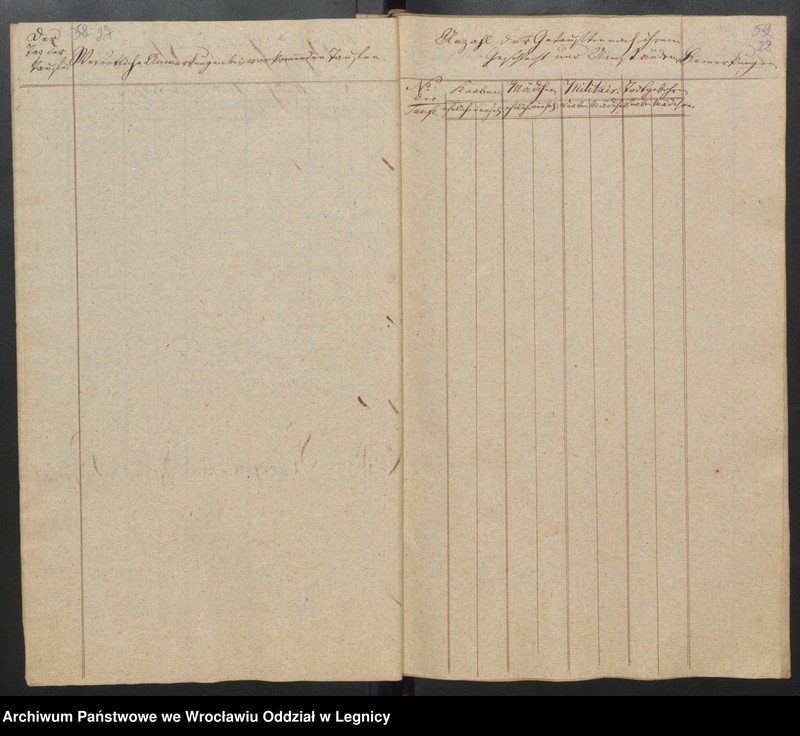 58 27
Der
Tag der
Taufe
Wesentliche Anmerkungen bei vorkommenden Taufen.
59
28
Anzahl der Getauften nach ihrem
Geschlecht und Umständen
Bemerkungen.
No.
der
Taufe
Knaben Mädchen Militair. Todtgebohren
Knaben Mädchen Knaben Mädchen.
Archiwum Państwowe we Wrocławiu Oddział w Legnicy